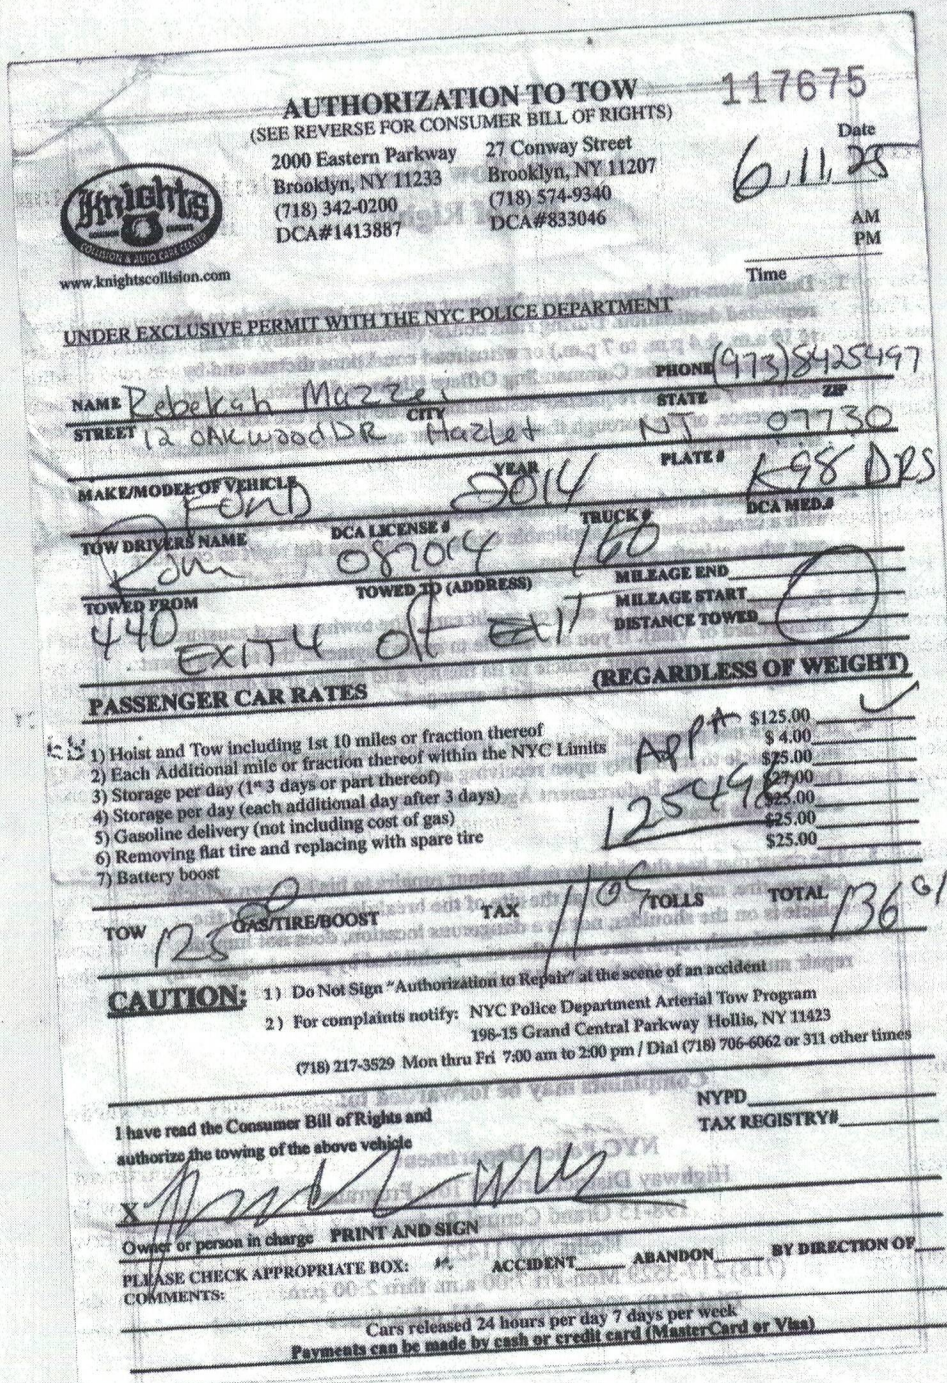 AUTHORIZATION TO TOW
117675
(SEE REVERSE FOR CONSUMER BILL OF RIGHTS)
2000 Eastern Parkway
Brooklyn, NY 11233
(718) 342-0200
DCA#1413887
27 Conway Street
Brooklyn, NY 11207
(718) 574-9340
DCA#833046
Date
6 11 25
AM
PM
Time
Knights
COLLISION & AUTO CARE CENTER
www.knightscollision.com
UNDER EXCLUSIVE PERMIT WITH THE NYC POLICE DEPARTMENT
NAME Rebekah Mazzei PHONE (973)8425497
STREET 12 OAKwood DR CITY Hazlet STATE NJ ZIP 07730
MAKE/MODEL OF VEHICLE FORD YEAR 2014 PLATE # K98 DRS
TOW DRIVERS NAME DCA LICENSE # 087014 TRUCK # 160 DCA MED.#
TOWED FROM 440 EXIT 4 TOWED TO (ADDRESS) off EXIT
MILEAGE END
MILEAGE START
DISTANCE TOWED
PASSENGER CAR RATES (REGARDLESS OF WEIGHT)
1) Hoist and Tow including 1st 10 miles or fraction thereof $125.00
2) Each Additional mile or fraction thereof within the NYC Limits $ 4.00
3) Storage per day (1st 3 days or part thereof) $25.00
4) Storage per day (each additional day after 3 days) $27.00
5) Gasoline delivery (not including cost of gas) $25.00
6) Removing flat tire and replacing with spare tire $25.00
7) Battery boost $25.00
APP#
TOW 125 00 GAS/TIRE/BOOST TAX 11 09 TOLLS TOTAL 136 09
CAUTION: 1) Do Not Sign "Authorization to Repair" at the scene of an accident
2) For complaints notify: NYC Police Department Arterial Tow Program
198-15 Grand Central Parkway Hollis, NY 11423
(718) 217-3529 Mon thru Fri 7:00 am to 2:00 pm / Dial (718) 706-6062 or 311 other times
I have read the Consumer Bill of Rights and
authorize the towing of the above vehicle
NYPD
TAX REGISTRY#
X
Owner or person in charge PRINT AND SIGN
PLEASE CHECK APPROPRIATE BOX: ACCIDENT ABANDON BY DIRECTION OF
COMMENTS:
Cars released 24 hours per day 7 days per week
Payments can be made by cash or credit card (MasterCard or Visa)